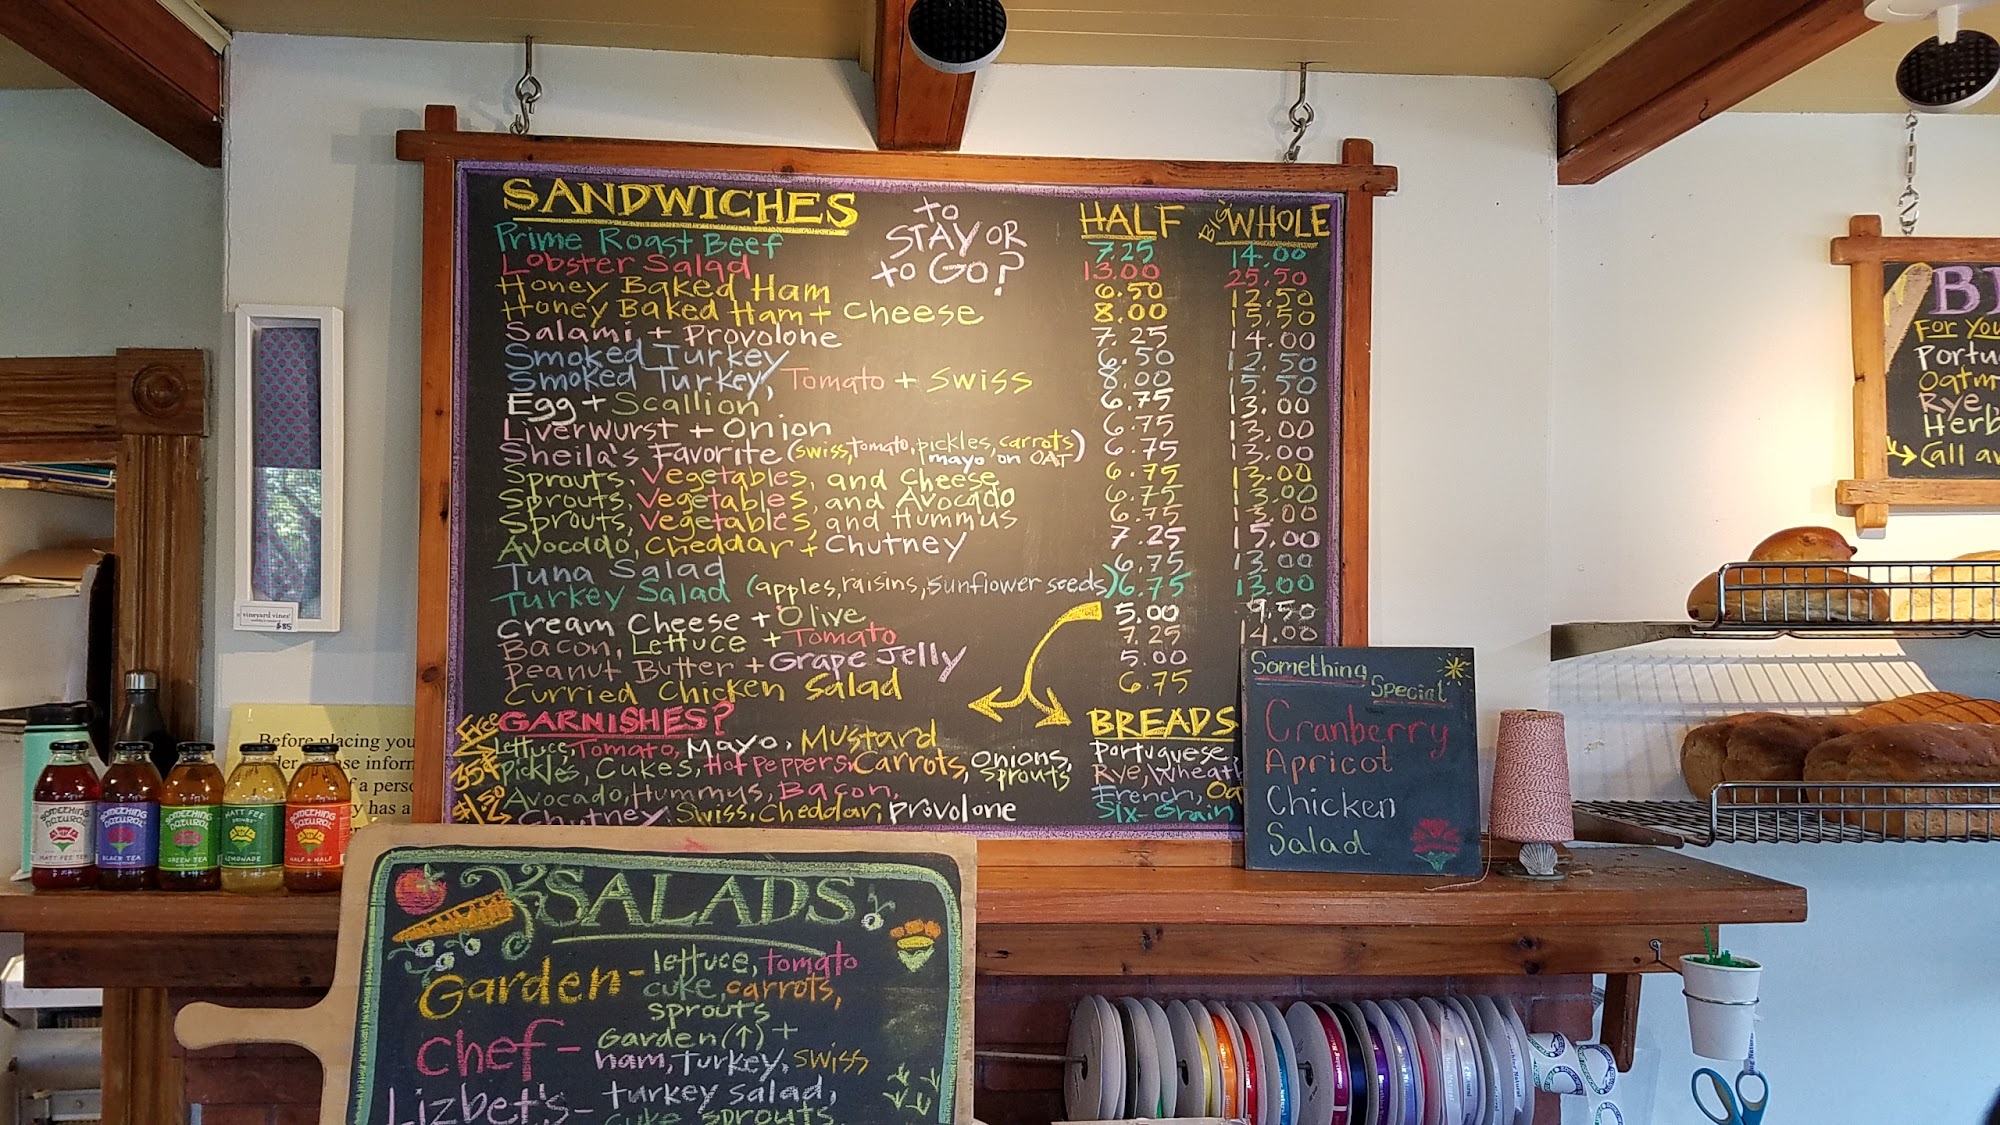 SANDWICHES
to STAY OR to GO?
HALF BIG! WHOLE
Prime Roast Beef 7.25 14.00
Lobster Salad 13.00 25.50
Honey Baked Ham 6.50 12.50
Honey Baked Ham + Cheese 8.00 15.50
Salami + Provolone 7.25 14.00
Smoked Turkey 6.50 12.50
Smoked Turkey, Tomato + Swiss 8.00 15.50
Egg + Scallion 6.75 13.00
Liverwurst + Onion 6.75 13.00
Sheila's Favorite (swiss, tomato, pickles, carrots 6.75 13.00
mayo on OAT)
Sprouts, Vegetables, and Cheese 6.75 13.00
Sprouts, Vegetables, and Avocado 6.75 13.00
Sprouts, Vegetables, and Hummus 6.75 13.00
Avocado, Cheddar + Chutney 7.25 15.00
Tuna Salad 6.75 13.00
Turkey Salad (apples, raisins, sunflower seeds) 6.75 13.00
Cream Cheese + Olive 5.00 9.50
Bacon, Lettuce + Tomato 7.25 14.00
Peanut Butter + Grape Jelly 5.00
Curried Chicken Salad 6.75
Free GARNISHES?
Lettuce, Tomato, Mayo, Mustard
35¢ Pickles, Cukes, Hot Peppers, Carrots, Onions, sprouts
Avocado, Hummus, Bacon,
Chutney, Swiss, Cheddar, Provolone
BREADS
Portuguese,
Rye, Wheat
French, Oa
Six-Grain
Something
Special
Cranberry
Apricot
Chicken
Salad
For You
Portu
Oatm
Rye,
Herb
Call a
vineyard vines
$85
Before placing you
f a perso
ry has a
SOMETHING NATURAL
MATT FEE TEA
SOMETHING NATURAL
BLACK TEA
SOMETHING NATURAL
GREEN TEA
MATT FEE
LEMONADE
SOMETHING NATURAL
HALF & HALF
SALADS
Garden - lettuce, tomato
cuke, carrots,
sprouts
Chef - Garden(↑) +
ham, turkey, swiss
Lizbet's - turkey salad,
cuke, sprouts